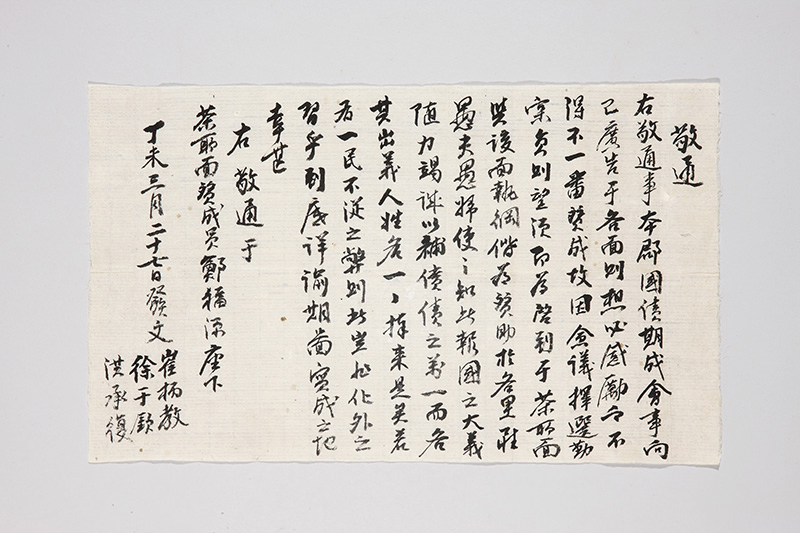 敬通
右敬通事本郡國債期成會事向
已廣告于各面則想必感勵而不
得不一番贊成故因会議擇選勤
實員則望須即爲啓到于茶所面
與該面執綱偕爲贊助於各里雖
愚夫愚婦使之知此報國之大義
随力竭誠以補債債之萬一而各
其出義人姓名一々持来是矣若
有一民不從之弊則此豈非化外之
習乎到底詳諭期啚實成之地
幸甚
右敬通于
茶所面贊成員鄭 座下
丁未三月二十七日發文
崔柄教
徐于欽
洪承復